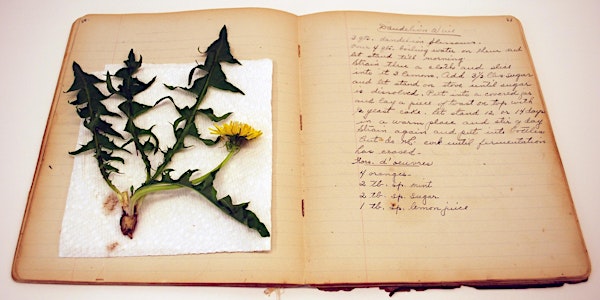 Dandelion Wine
2 qts. dandelion blossoms.
Pour 4 qts. boiling water on them and
let stand till morning.
Strain thru a cloth and slice
into it 3 lemons. Add 3½ lbs sugar
and let stand on stove until sugar
is dissolved. Put into a covered jar
and lay a piece of toast on top with
a yeast cake. let stand 12 or 14 days
in a warm place and stir q day
Strain again and put into bottles
but do not cork until fermentation
has ceased.
Hors d'oeuvres
4 oranges
2 tb. sp. mint
2 tb. sp. sugar
1 tb. sp. lemon juice